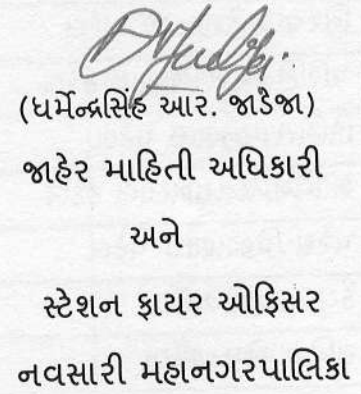 (ધર્મેન્દ્રસિંહ આર. જાડેજા)
જાહેર માહિતી અધિકારી
અને
સ્ટેશન ફાયર ઓફિસર
નવસારી મહાનગરપાલિકા